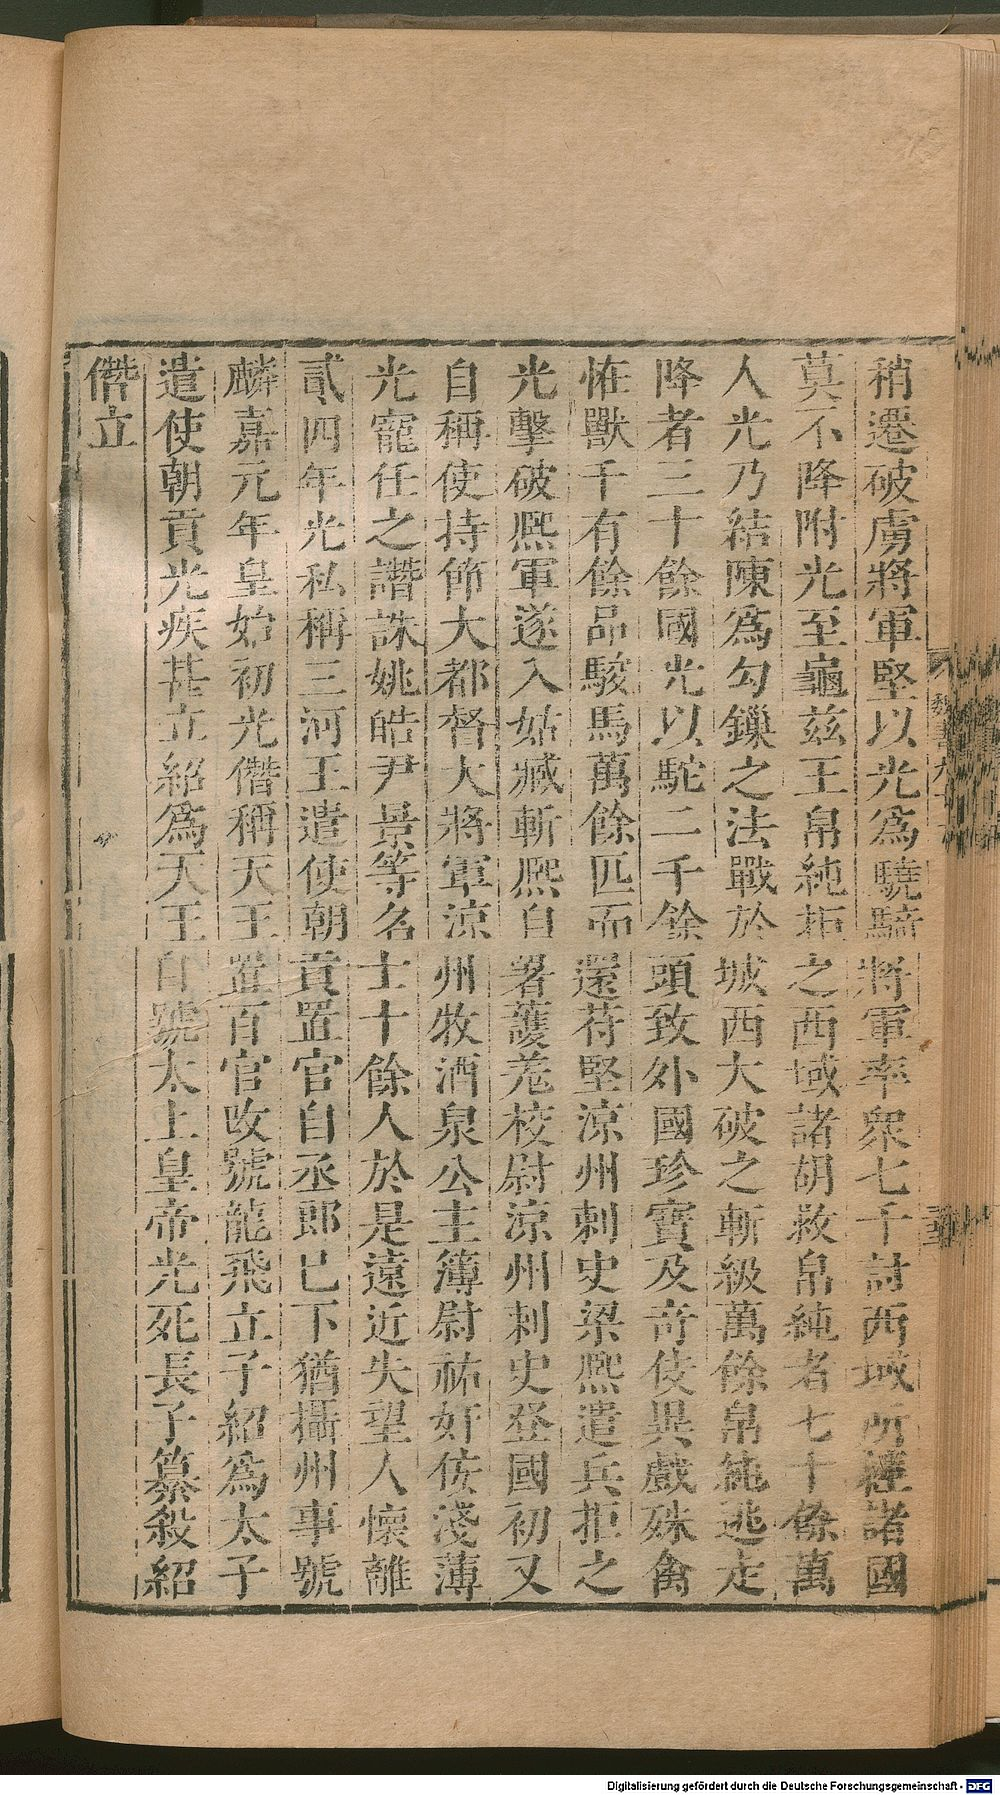 稍遷破虜將軍堅以光爲驍騎將軍率衆七千討西域所經諸國
莫不降附光至龜茲王帛純拒之西域諸胡救帛純者七十餘萬
人光乃結陳爲勾鏁之法戰於城西大破之斬級萬餘帛純逃走
降者三十餘國光以駝二千餘頭致外國珍寶及奇伎異戲殊禽
怪獸千有餘品駿馬萬餘匹而還苻堅涼州刺史梁熙遣兵拒之
光擊破熙軍遂入姑臧斬熙自署護羌校尉涼州刺史登國初又
自稱使持節大都督大將軍涼州牧酒泉公主簿尉祐奸佞淺薄
光寵任之譖誅姚皓尹景等名士十餘人於是遠近失望人懷離
貳四年光私稱三河王遣使朝貢置官自丞郎已下猶攝州事號
麟嘉元年皇始初光僭稱天王置百官改號龍飛立子紹爲太子
遣使朝貢光疾甚立紹爲天王自號太上皇帝光死長子纂殺紹
僭立
Digitalisierung gefördert durch die Deutsche Forschungsgemeinschaft - DFG